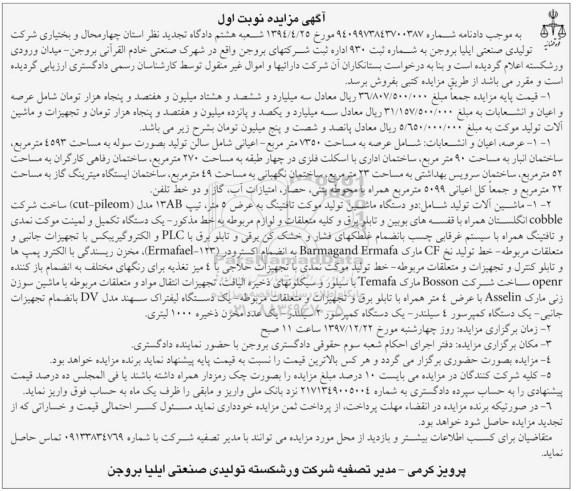 آگهی مزایده نوبت اول
به موجب دادنامه شماره ۹۴۰۹۹۷۳۸۴۳۷۰۰۳۸۷ مورخ ۱۳۹۴/۴/۲۵ شعبه هشتم دادگاه تجدید نظر استان چهارمحال و بختیاری شرکت
تولیدی صنعتی ایلیا بروجن به شماره ثبت ۹۳۰ اداره ثبت شرکتهای بروجن واقع در شهرک صنعتی خادم القرآنی بروجن- میدان ورودی
ورشکسته اعلام گردیده است و بنا به درخواست بستانکاران آن شرکت دارائیها و اموال غیر منقول توسط کارشناسان رسمی دادگستری ارزیابی گردیده
است و مقرر می باشد از طریق مزایده کتبی بفروش برسد.
۱- قیمت پایه مزایده جمعا مبلغ ۳۶/۸۰۷/۵۰۰/۰۰۰ ریال معادل سه میلیارد و ششصد و هشتاد میلیون و هفتصد و پنجاه هزار تومان شامل عرصه
و اعیان و انشعابات به مبلغ ۳۱/۱۵۷/۵۰۰/۰۰۰ ریال معادل سه میلیارد و یکصد و پانزده میلیون و هفتصد و پنجاه هزار تومان و تجهیزات و ماشین
آلات تولید موکت به مبلغ ۵/۶۵۰/۰۰۰/۰۰۰ ریال معادل پانصد و شصت و پنج میلیون تومان بشرح زیر می باشد.
۱-۱- عرصه، اعیان و انشعابات: شامل عرصه به مساحت ۷۳۵۰ متر مربع- اعیانی شامل سالن تولید بصورت سوله به مساحت ۴۵۹۳ مترمربع،
ساختمان انبار به مساحت ۹۰ متر مربع، ساختمان اداری با اسکلت فلزی در چهار طبقه به مساحت ۲۷۰ مترمربع، ساختمان رفاهی کارگران به مساحت
۵۲ مترمربع، ساختمان سرویس بهداشتی به مساحت ۲۳ مترمربع، ساختمان نگهبانی به مساحت ۴۹ مترمربع، ساختمان ایستگاه میترینگ گاز به مساحت
۲۲ مترمربع و جمعا کل اعیانی ۵۰۹۹ مترمربع همراه با محوطه بتنی، حصار، امتیازات آب، گاز و دو خط تلفن.
۱-۲- ماشین آلات تولید شامل: دو دستگاه ماشین تولید موکت تافتینگ به عرض ۵ متر، تیپ ۱۳AB مدل (cut-pileom) ساخت شرکت
cobble انگلستان همراه با قفسه های بوبین و تابلو برق و کلیه متعلقات و لوازم مربوطه به خط مذکور- یک دستگاه تکمیل و لمینت موکت نمدی
و تافتینگ همراه با سیستم غرقابی چسب بانضمام غلطکهای فشار و خشک کن برقی و تابلو برق با PLC و الکتروگیربکس با تجهیزات جانبی و
متعلقات مربوطه- خط تولید نخ CF مارک Barmagand Ermafa به انضمام اکسترودر (Ermafael-۱۲۳)، مخزن ریسندگی با الکترو پمپ ها
و تابلو کنترل و تجهیزات و متعلقات مربوطه- خط تولید موکت نمدی با تجهیزات حلاجی با ۴ میز تغذیه برای رنگهای مختلف به انضمام باز کننده
openr ساخت شرکت Bosson مارک Temafa با سیلور و سیکلونهای ذخیره الیافت، تجهیزات انتقال مواد و متعلقات مربوطه با ماشین سوزن
زنی مارک Asselin با عرض ۴ متر همراه با تابلو برق و تجهیزات و متعلقات مربوطه- یک دستگاه لیفتراک سهند مدل DV بانضمام تجهیزات
جانبی- یک دستگاه کمپرسور ۴ سیلندر- یک دستگاه کمپرسور ۳ سیلندر- یک عدد مخزن ذخیره ۱۰۰۰ لیتری.
۲- زمان برگزاری مزایده: روز چهارشنبه مورخ ۱۳۹۷/۱۲/۲۲ ساعت ۱۱ صبح
۳- مکان برگزاری مزایده: دفتر اجرای احکام شعبه سوم حقوقی دادگستری بروجن با حضور نماینده دادگستری.
۴- مزایده بصورت حضوری برگزار می گردد و هر کس بالاترین قیمت را نسبت به قیمت پایه پیشنهاد نماید برنده مزایده خواهد بود.
۵- کلیه شرکت کنندگان در مزایده می بایست ۱۰ درصد مبلغ مزایده را بصورت چک رمزدار همراه داشته باشند یا فی المجلس ده درصد قیمت
پیشنهادی را به حساب سپرده دادگستری به شماره ۲۱۷۱۳۴۹۰۰۵۰۰۴ نزد بانک ملی واریز و مابقی را ظرف یک ماه به حساب فوق واریز نماید.
۶- در صورتیکه برنده مزایده در انقضاء مهلت پرداخت، از پرداخت ثمن مزایده خودداری نماید مسئول کسر احتمالی قیمت و خساراتی که از
تجدید مزایده حاصل شود خواهد بود.
متقاضیان برای کسب اطلاعات بیشتر و بازدید از محل مورد مزایده می توانند با مدیر تصفیه شرکت با شماره ۰۹۱۳۳۸۳۴۷۶۹ تماس حاصل
نمایند.
پرویز کرمی - مدیر تصفیه شرکت ورشکسته تولیدی صنعتی ایلیا بروجن